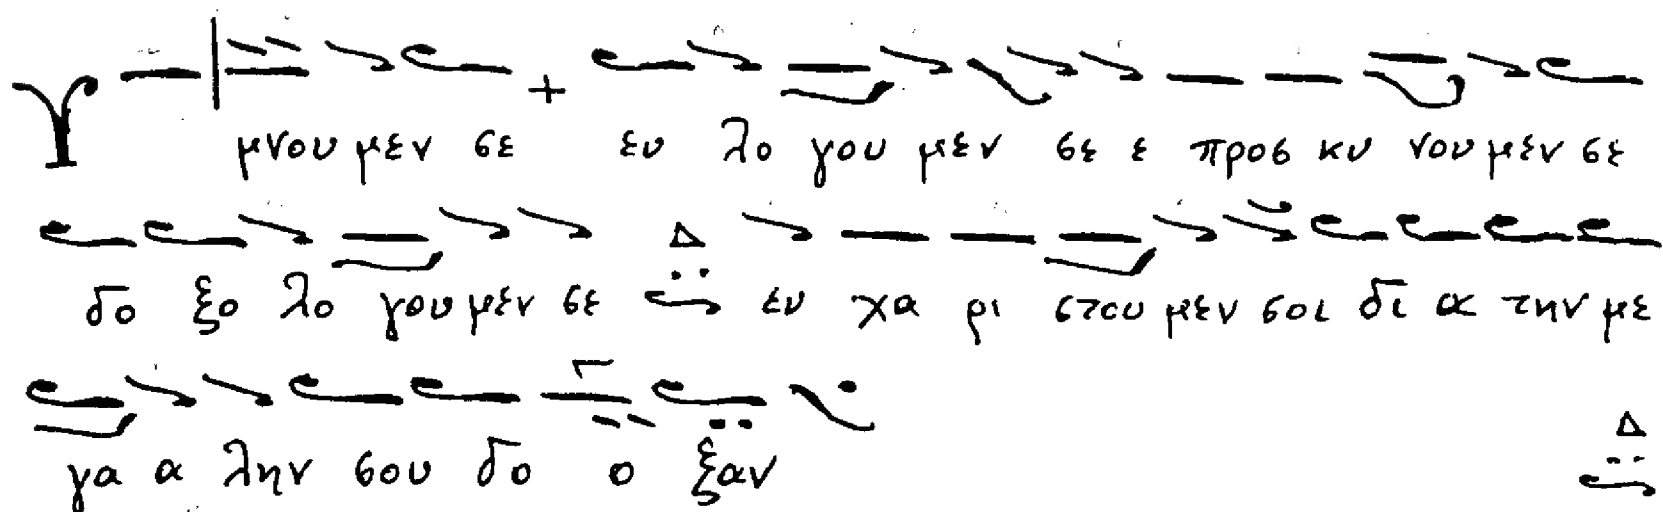 Υ μνου μεν σε ευ λο γου μεν σε ε προσ κυ νου μεν σε
δο ξο λο γου μεν σε Δ ευ χα ρι στου μεν σοι δι α την με
γα α λην σου δο ο ξαν Δ